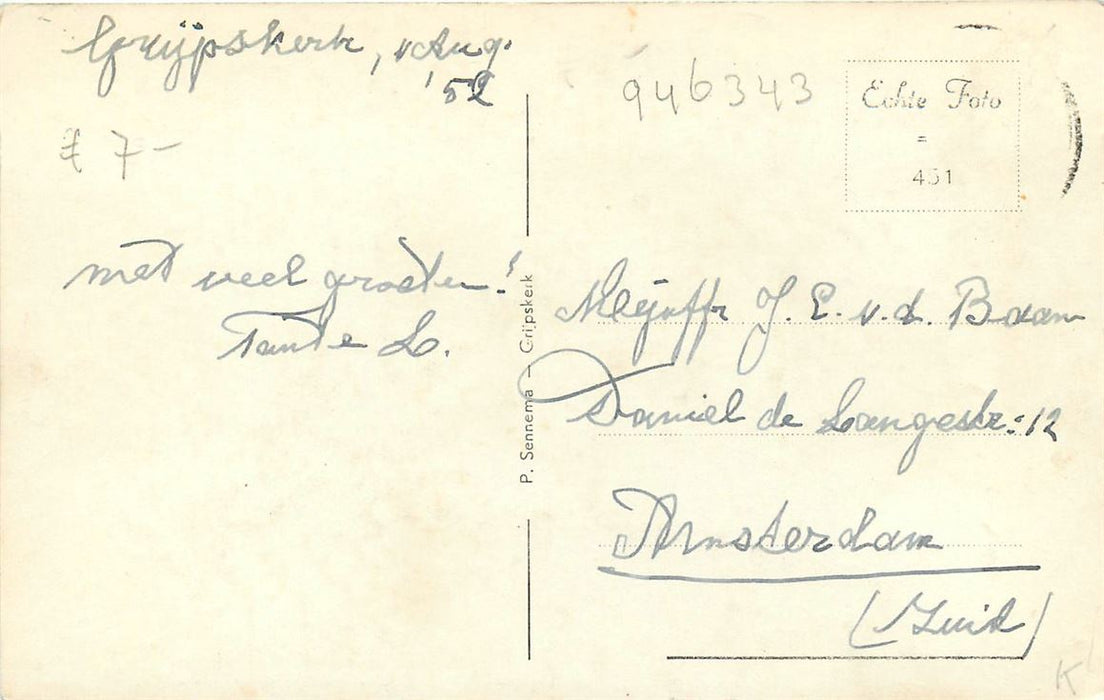 Grijpskerk, Aug.
'52
946343
Echte Foto
=
451
7-
met veel groeten!
Tante L.
P. Sennema — Grijpskerk
Mejuffr J. E. v. d. Baan
Daniel de Langestr: 12
Amsterdam
(Zuid)
K